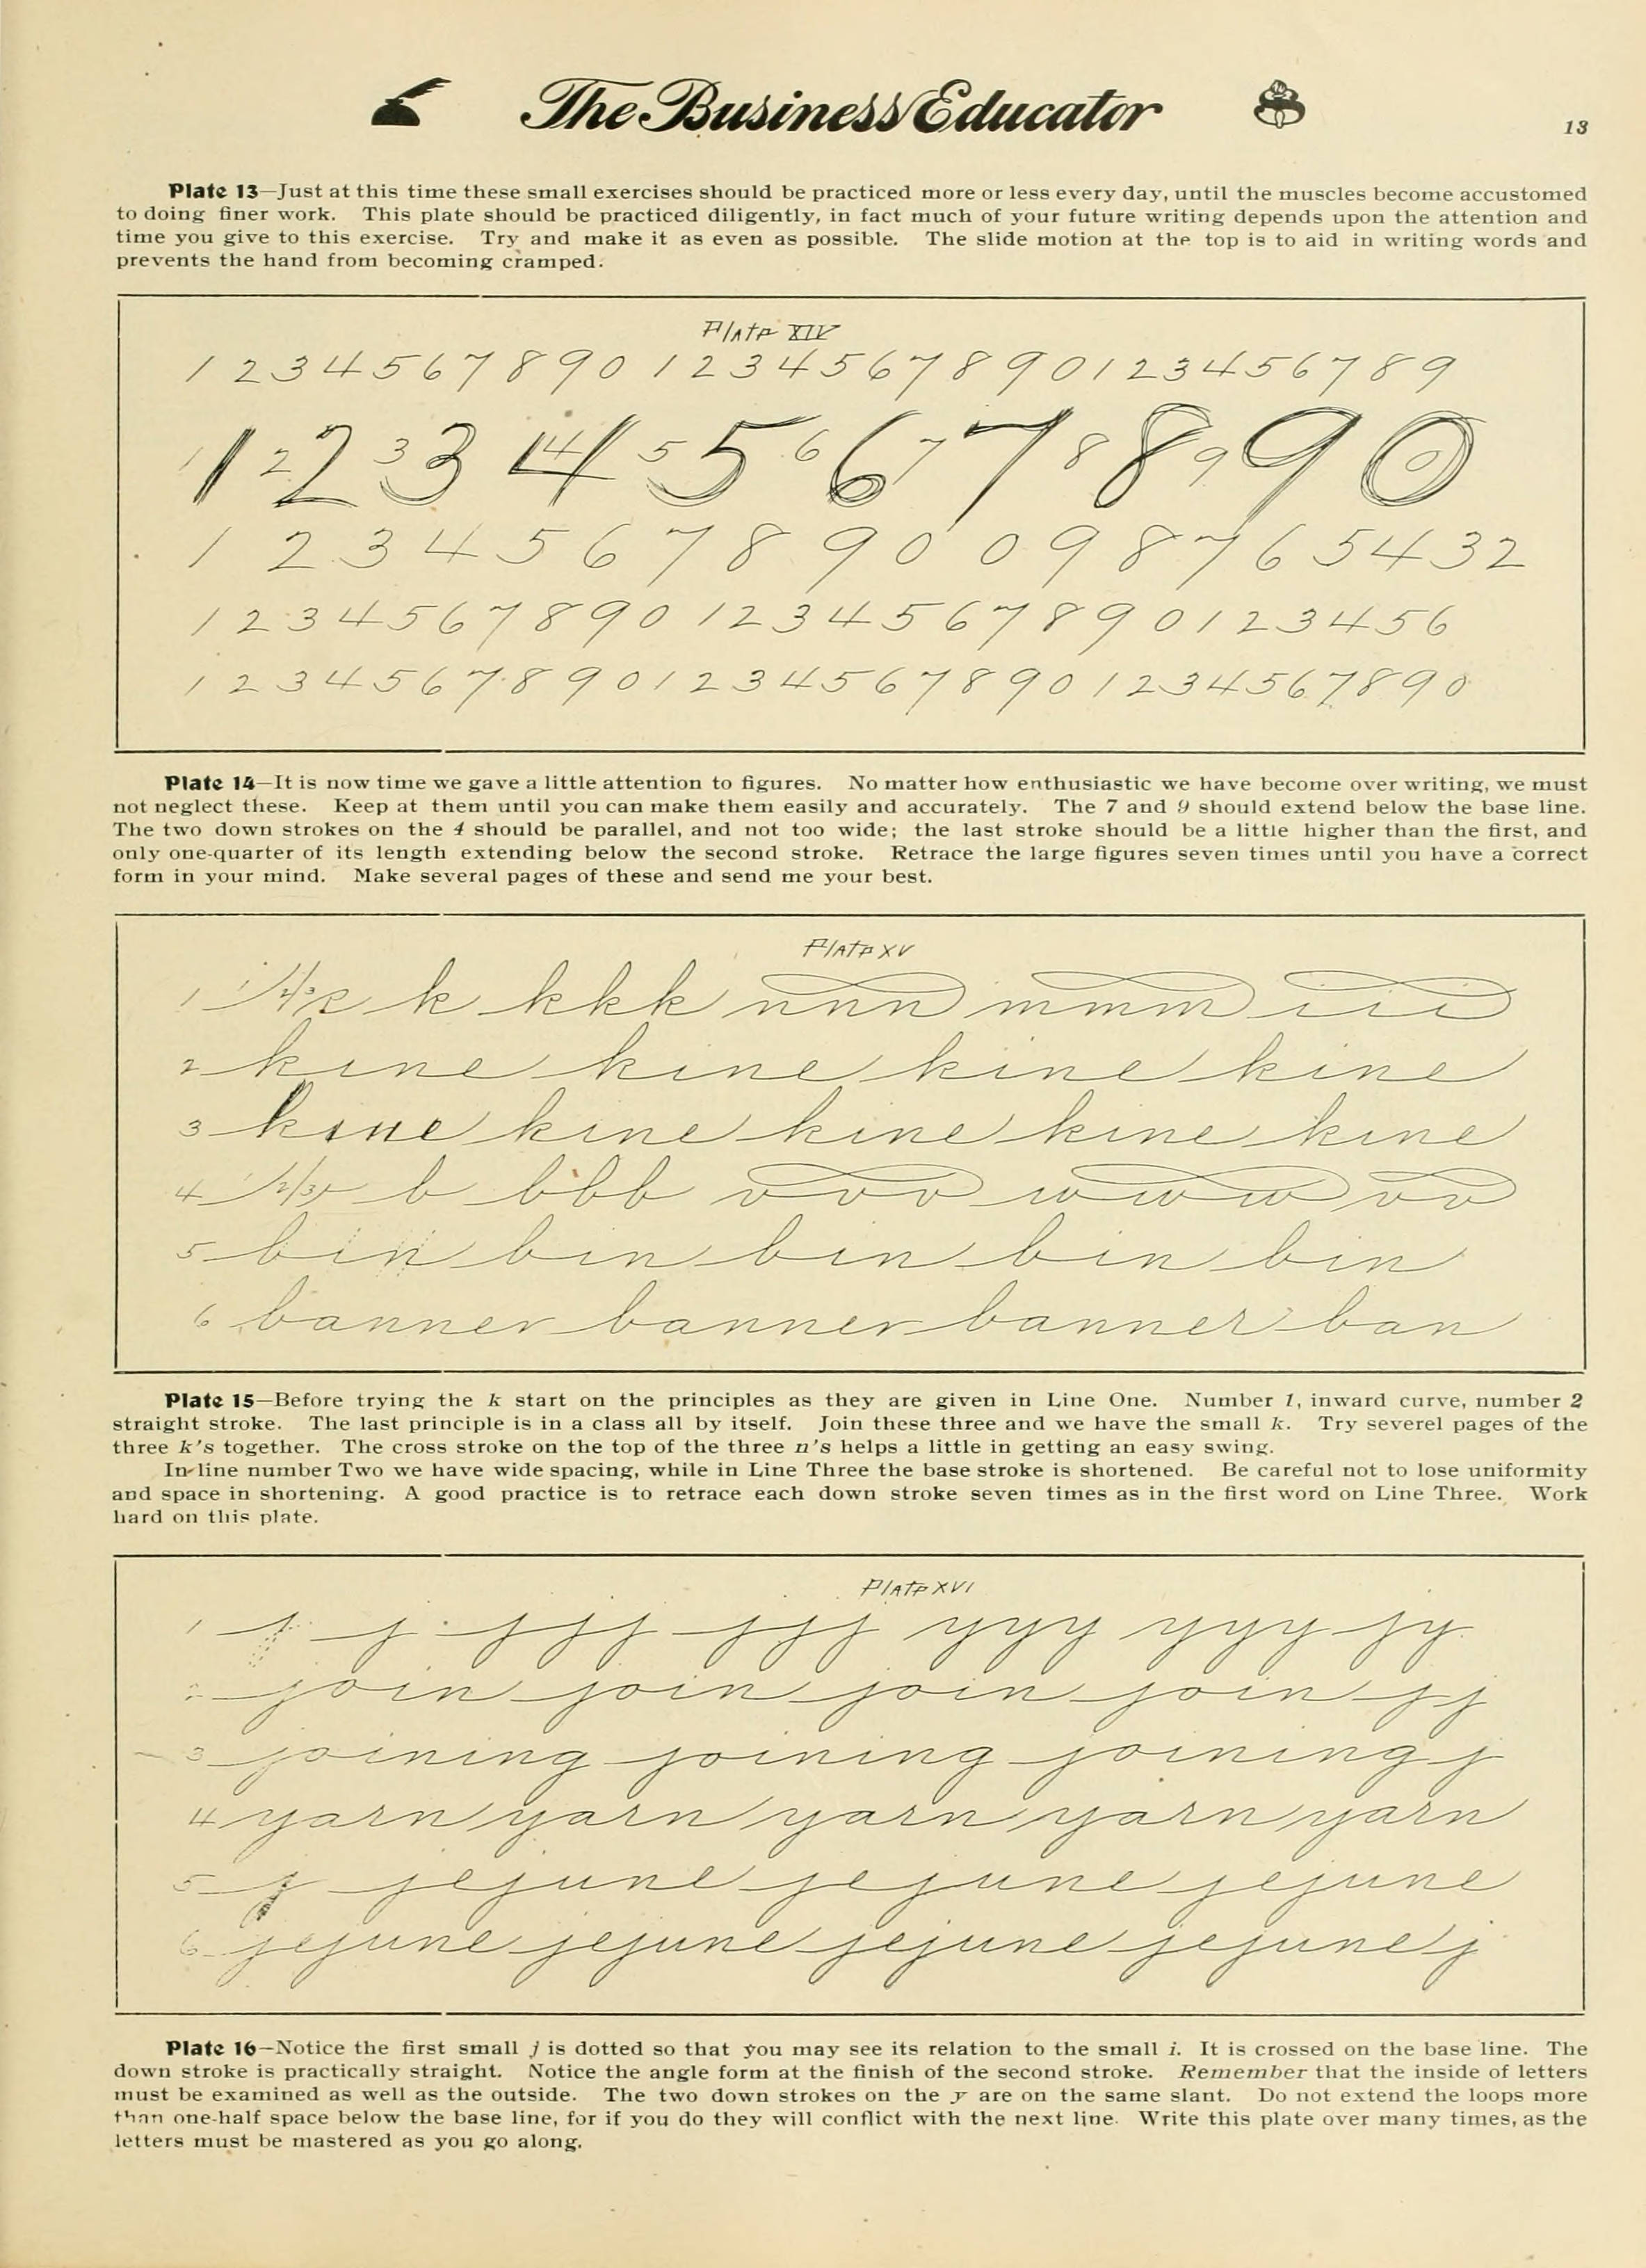 The Business Educator
13
Plate 13—Just at this time these small exercises should be practiced more or less every day, until the muscles become accustomed
to doing finer work. This plate should be practiced diligently, in fact much of your future writing depends upon the attention and
time you give to this exercise. Try and make it as even as possible. The slide motion at the top is to aid in writing words and
prevents the hand from becoming cramped.
Plate XIV
1 2 3 4 5 6 7 8 9 0 1 2 3 4 5 6 7 8 9 0 1 2 3 4 5 6 7 8 9
1 1 2 2 3 3 4 4 5 5 6 6 7 7 8 8 9 9 0 0
1 2 3 4 5 6 7 8 9 0 0 9 8 7 6 5 4 3 2
1 2 3 4 5 6 7 8 9 0 1 2 3 4 5 6 7 8 9 0 1 2 3 4 5 6
1 2 3 4 5 6 7 8 9 0 1 2 3 4 5 6 7 8 9 0 1 2 3 4 5 6 7 8 9 0
Plate 14—It is now time we gave a little attention to figures. No matter how enthusiastic we have become over writing, we must
not neglect these. Keep at them until you can make them easily and accurately. The 7 and 9 should extend below the base line.
The two down strokes on the 4 should be parallel, and not too wide; the last stroke should be a little higher than the first, and
only one-quarter of its length extending below the second stroke. Retrace the large figures seven times until you have a correct
form in your mind. Make several pages of these and send me your best.
Plate XV
1 1 2 3 k k k k n n n m m m i i i
2 kine kine kine kine
3 kine kine kine kine kine
4 1 2 3 b b b b v v v w w w v v
5 bin bin bin bin bin
6 banner banner banner ban
Plate 15—Before trying the k start on the principles as they are given in Line One. Number 1, inward curve, number 2
straight stroke. The last principle is in a class all by itself. Join these three and we have the small k. Try severel pages of the
three k's together. The cross stroke on the top of the three n's helps a little in getting an easy swing.
In line number Two we have wide spacing, while in Line Three the base stroke is shortened. Be careful not to lose uniformity
and space in shortening. A good practice is to retrace each down stroke seven times as in the first word on Line Three. Work
hard on this plate.
Plate XVI
1 j j j j j j j j y y y y y y j y
2 join join join join j j
3 joining joining joining j
4 yarn yarn yarn yarn yarn
5 j jejune jejune jejune
6 jejune jejune jejune jejune j
Plate 16—Notice the first small j is dotted so that you may see its relation to the small i. It is crossed on the base line. The
down stroke is practically straight. Notice the angle form at the finish of the second stroke. Remember that the inside of letters
must be examined as well as the outside. The two down strokes on the y are on the same slant. Do not extend the loops more
than one-half space below the base line, for if you do they will conflict with the next line. Write this plate over many times, as the
letters must be mastered as you go along.